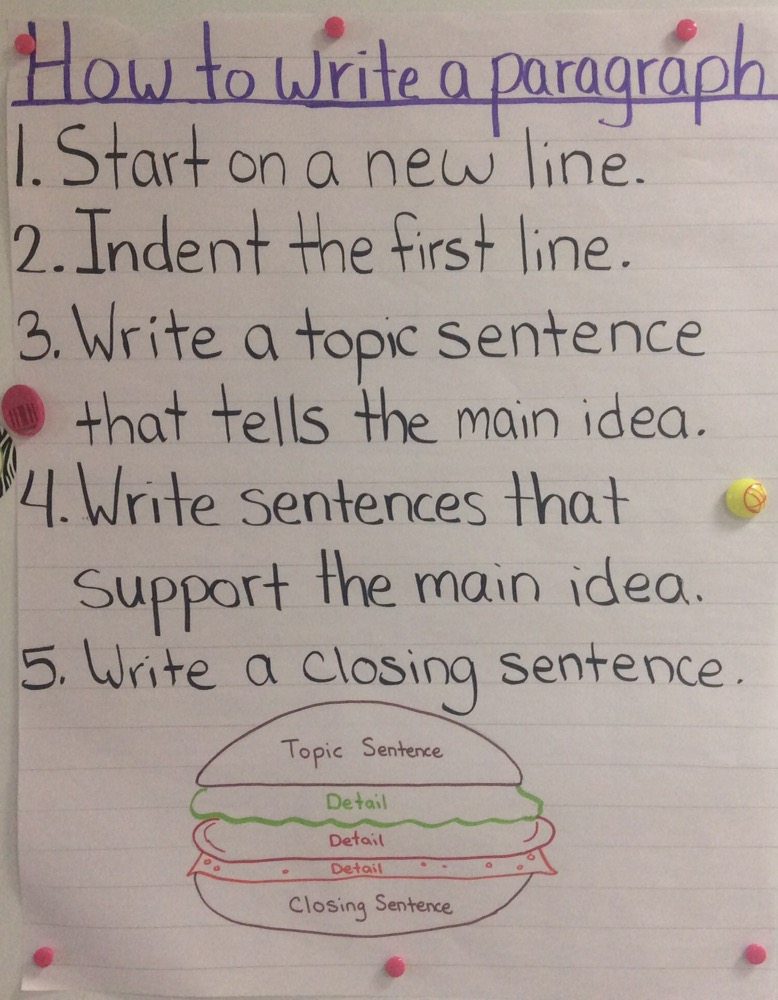 How to Write a paragraph
1. Start on a new line.
2. Indent the first line.
3. Write a topic sentence
that tells the main idea.
4. Write sentences that
support the main idea.
5. Write a closing sentence.
Topic Sentence
Detail
Detail
Detail
Closing Sentence